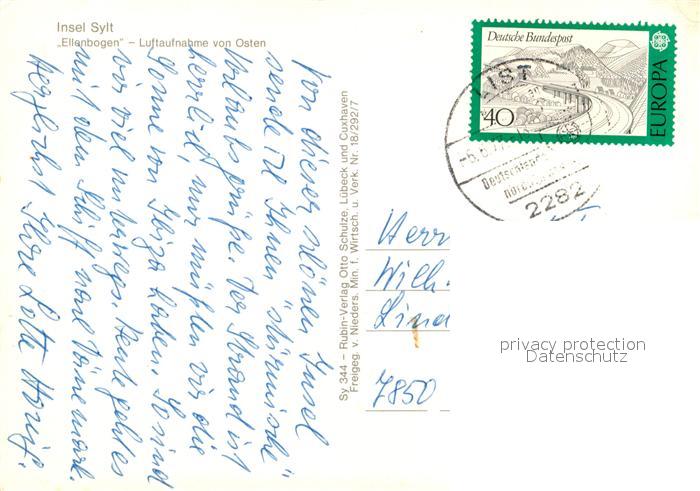 Insel Sylt
„Ellenbogen" – Luftaufnahme von Osten
Von dieser schönen Insel
sende ich Ihnen "stürmische"
Urlaubsgrüße. Der Strand ist
herrlich, nur müßten wir die
Sonne von Ibiza haben. So sind
wir viel unterwegs. Heute geht es
mit dem Schiff nach Dänemark.
Herzlichst Ihre Lotte
Sy 344 – Rubin-Verlag Otto Schulze, Lübeck und Cuxhaven
Freigeg. v. Nieders. Min. f. Wirtsch. u. Verk. Nr. 18/292/7
Deutsche Bundespost
40
EUROPA
LIST
Deutschlands
2282
Herr
Wilh.
Lina
7850
privacy protection
Datenschutz